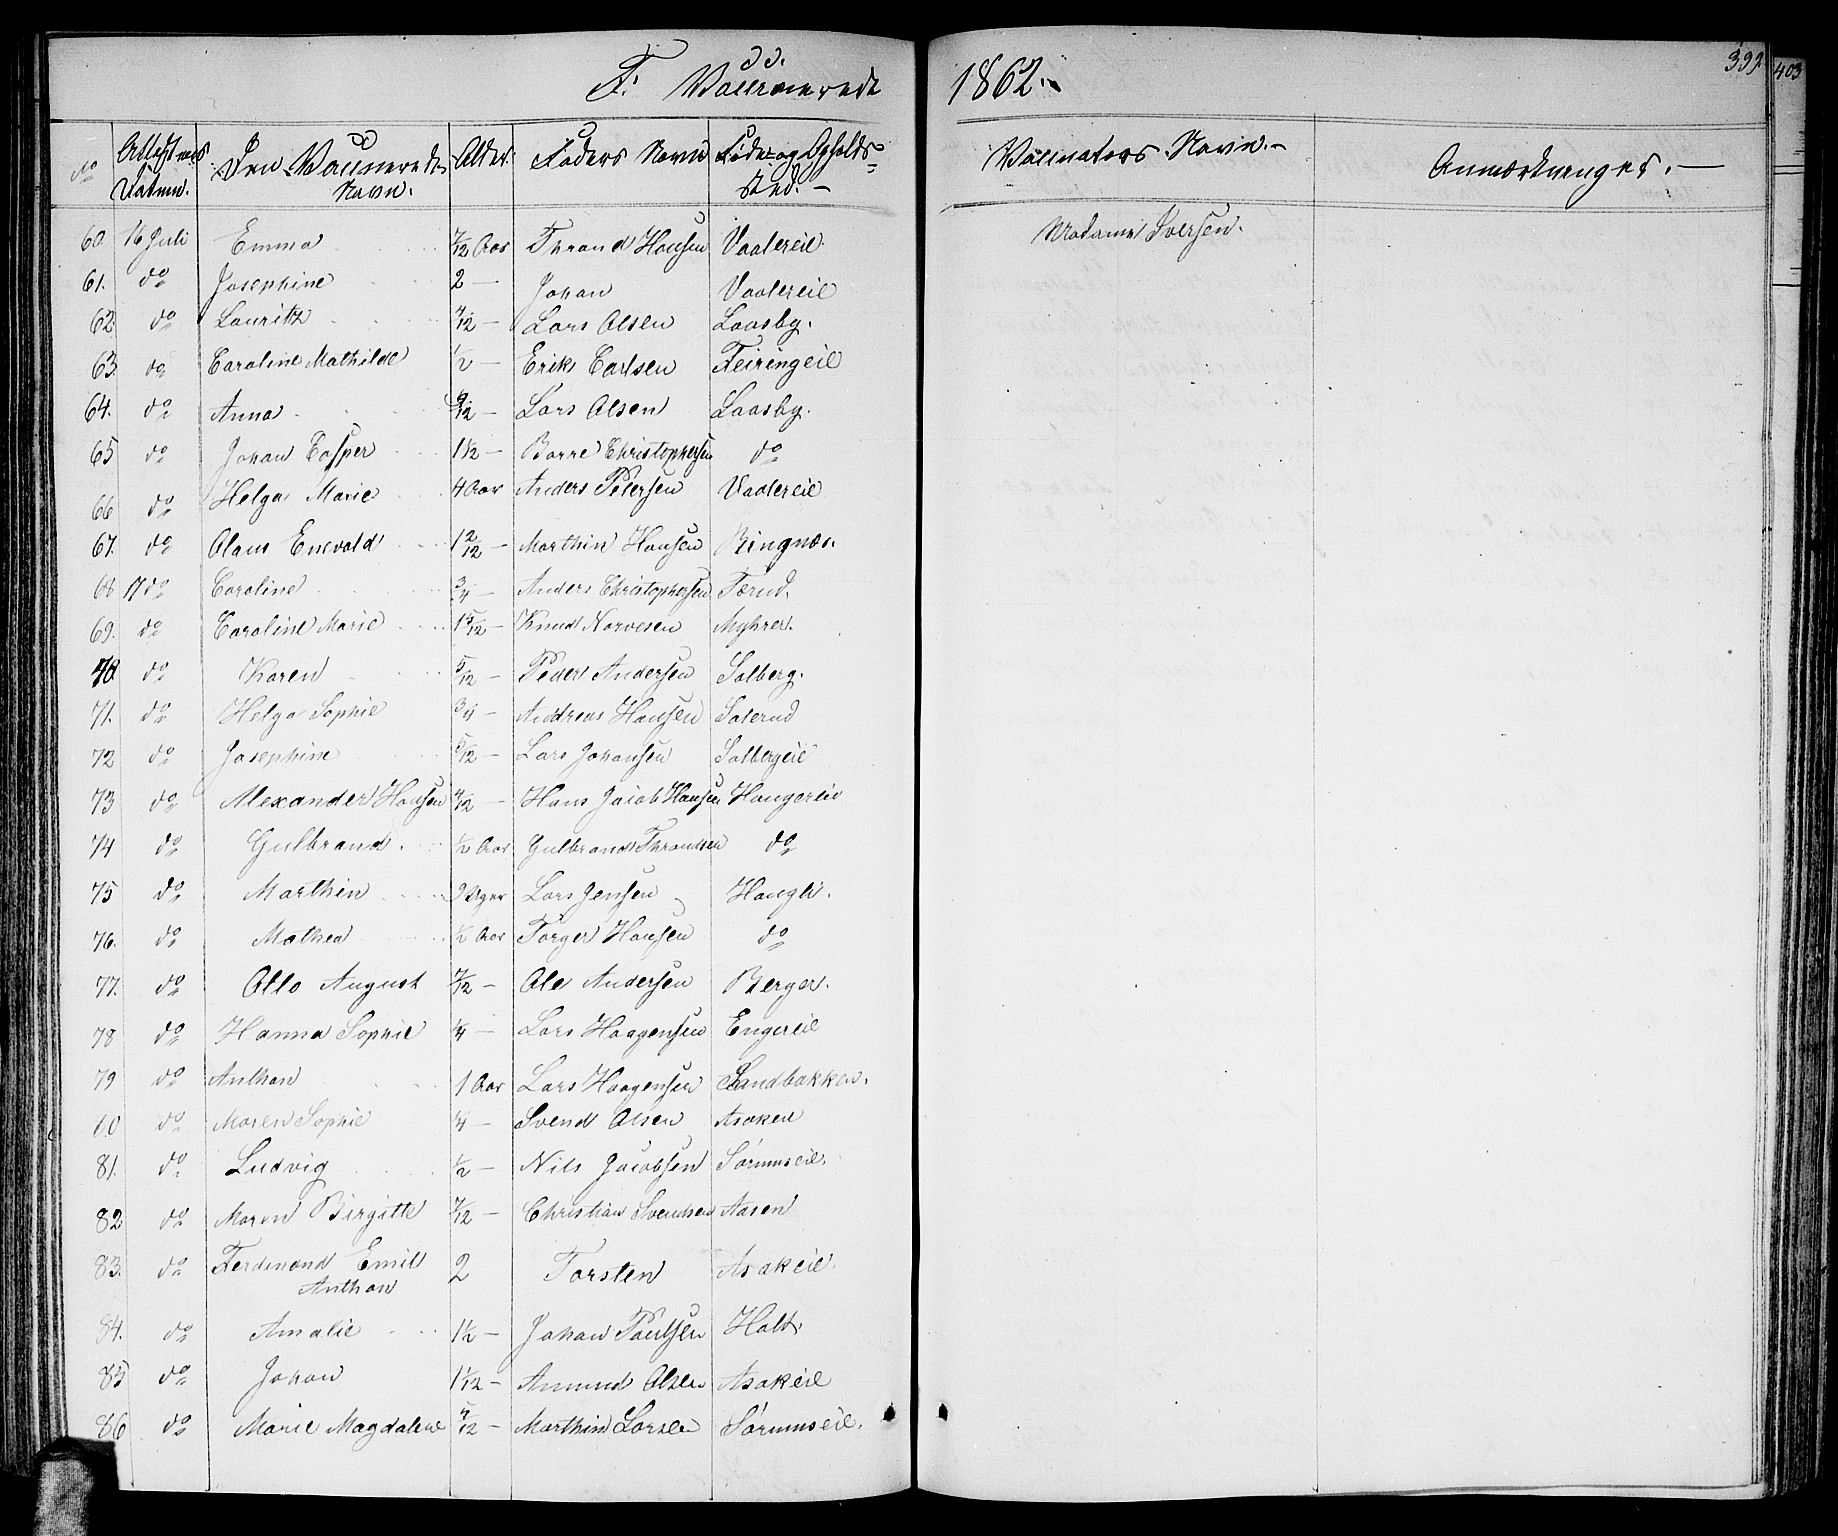 F. Vaccinerede 1862.
392
403
No Attestens Datum. Den Vaccineredes Navn. Alder. Faders Navn Føde- og Opholds- Sted. Vaccinators Navn. Anmærkninger.
60 16 Juli Emma 7/12 Aar Thrond Hansen Vaalereie Madame Iversen.
61. do Josephine 2 — Johan Vaalereie
62 do Lauritz 4/12 — Lars Olsen Laasby.
63 do Caroline Mathilde 1/2 — Erik Carlsen Feiringeie
64. do Anna 9/12 — Lars Olsen Laasby.
65 do Johan Casper 1 1/2 — Borre Christophersen do
66 do Helga Marie 4 Aar Anders Petersen Vaalereie
67. do Olaus Enevald 1 2/12 — Marthin Hansen Ringnæs.
68 17 do Caroline 3/4 — Anders Christophersen Færud.
69. do Caroline Marie 1 5/12 — Knud Narvesen Myhrer.
70 do Karen 5/12 — Peder Andersen Solberg.
71. do Helga Sophie 3/4 — Andreas Hansen Solerud
72 do Josephine 5/12 — Lars Johansen Solbergeie
73 do Alexander Hansen 4/12 — Hans Jacob Hansen Haugereie
74 do Gulbrand. 1/2 Aar Gulbrand Throndsen do
75 do Marthin 9 Uger Lars Jensen Haugli.
76. do Mathea 1/2 Aar Torger Hansen do
77. do Otto August 7/12 — Ole Andersen Berger.
78 do Hanna Sophie 1/4 — Lars Haagensen Engereie
79 do Anthon 1 Aar Lars Haagensen Sandbakken.
80 do Maren Sophie 1/4 — Svend Olsen Asaken
81. do Ludvig 1/2 — Nils Jacobsen Sørumseie.
82 do Maren Birgitte 7/12 — Christian Svendsen Aasen
83. do Ferdinand Emil 2 Torsten Asakeie.
Anthon
84. do Amalie 1 1/2 — Johan Paulsen Holt.
85 do Johan 1 1/12 — Amund Olsen Asakeie
86 do Marie Magdalene 5/12 — Marthin Larsen Sørumseie.